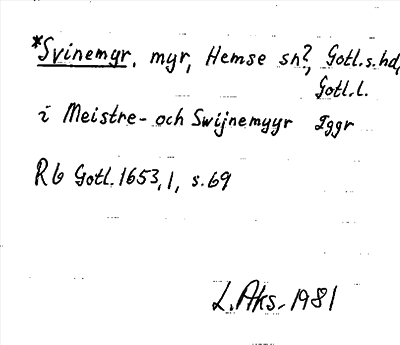 *Svinemyr, myr, Hemse sn?, Gotl. s. hd,
Gotl. l.
i Meistre- och Swijnemyyr Iggr
Rb Gotl. 1653,1, s. 69
L. Aks. 1981